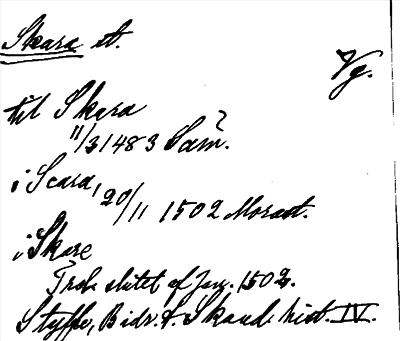 Skara st.
Vg.
til Skara
11/3 1483 Sam̃.
i Scara, 20/11 1502 Morast.
i Skare
Trol. slutet af Jan. 1502.
Styffe, Bidr. t. Skand. hist. IV.